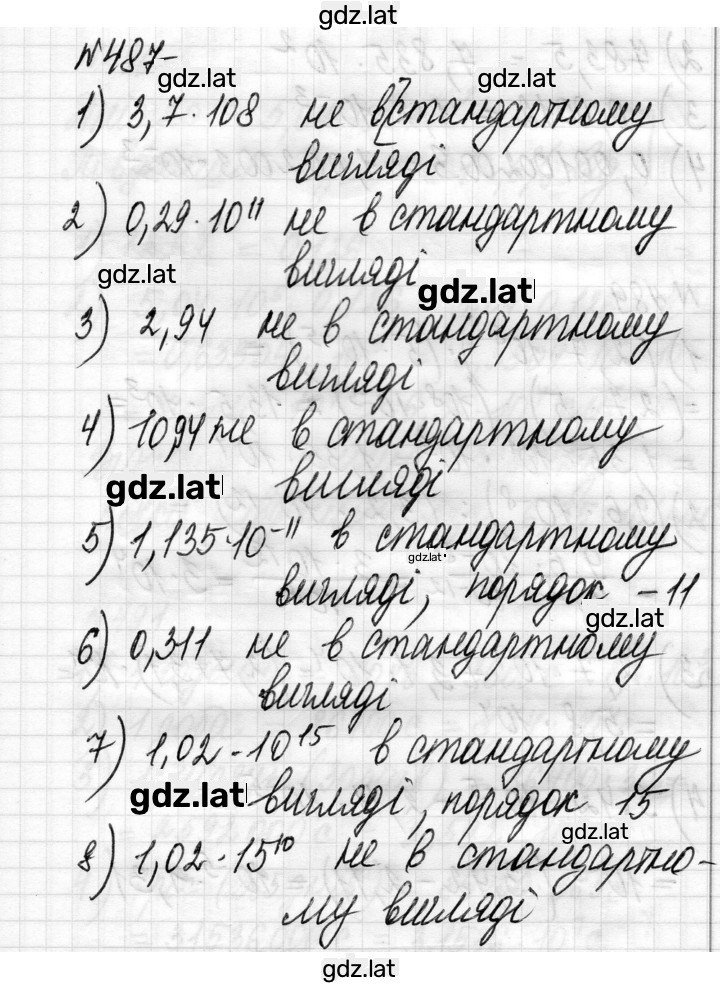 gdz.lat
№487-
gdz.lat gdz.lat
1) 3,7·108 не в стандартному
вигляді
2) 0,29·10¹¹ не в стандартному
gdz.lat вигляді gdz.lat
3) 2,94 не в стандартному
вигляді
4) 1094 не в стандартному
gdz.lat вигляді
5) 1,135·10⁻¹¹ в стандартному
gdz.lat
вигляді, порядок -11
gdz.lat
6) 0,311 не в стандартному
вигляді
7) 1,02·10¹⁵ в стандартному
gdz.lat вигляді, порядок 15
gdz.lat
8) 1,02·15¹⁰ не в стандартно-
му вигляді
gdz.lat